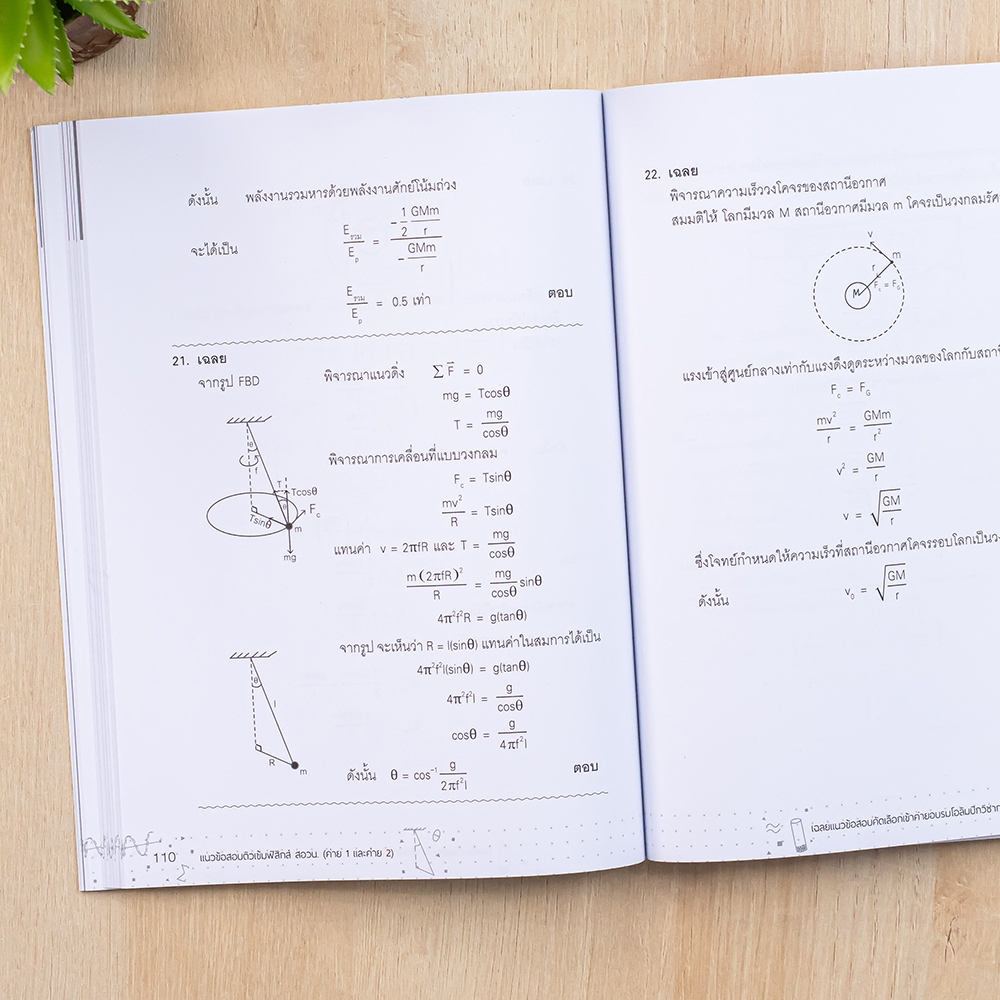 ดังนั้น พลังงานรวมหารด้วยพลังงานศักย์โน้มถ่วง
จะได้เป็น Eรวม/Ep = (-1/2 GMm/r)/(-GMm/r)
Eรวม/Ep = 0.5 เท่า ตอบ
21. เฉลย
จากรูป FBD พิจารณาแนวดิ่ง ∑F̄ = 0
mg = Tcosθ
T = mg/cosθ
พิจารณาการเคลื่อนที่แบบวงกลม
Fc = Tsinθ
mv²/R = Tsinθ
แทนค่า v = 2πfR และ T = mg/cosθ
m(2πfR)²/R = mg/cosθ sinθ
4π²f²R = g(tanθ)
θ
f
T
Tcosθ
θ
Fc
Tsinθ
m
mg
จากรูป จะเห็นว่า R = l(sinθ) แทนค่าในสมการได้เป็น
4π²f²l(sinθ) = g(tanθ)
4π²f²l = g/cosθ
cosθ = g/4πf²l
ดังนั้น θ = cos⁻¹ g/2πf²l ตอบ
θ
l
R
m
110 แนวข้อสอบติวเข้มฟิสิกส์ สอวน. (ค่าย 1 และค่าย 2)
θ
22. เฉลย
พิจารณาความเร็ววงโคจรของสถานีอวกาศ
สมมติให้ โลกมีมวล M สถานีอวกาศมีมวล m โคจรเป็นวงกลมรัศ
v
m
r
Fc = FG
M
แรงเข้าสู่ศูนย์กลางเท่ากับแรงดึงดูดระหว่างมวลของโลกกับสถานี
Fc = FG
mv²/r = GMm/r²
v² = GM/r
v = √(GM/r)
ซึ่งโจทย์กำหนดให้ความเร็วที่สถานีอวกาศโคจรรอบโลกเป็นว
ดังนั้น v₀ = √(GM/r)
เฉลยแนวข้อสอบคัดเลือกเข้าค่ายอบรมโอลิมปิกวิชาก